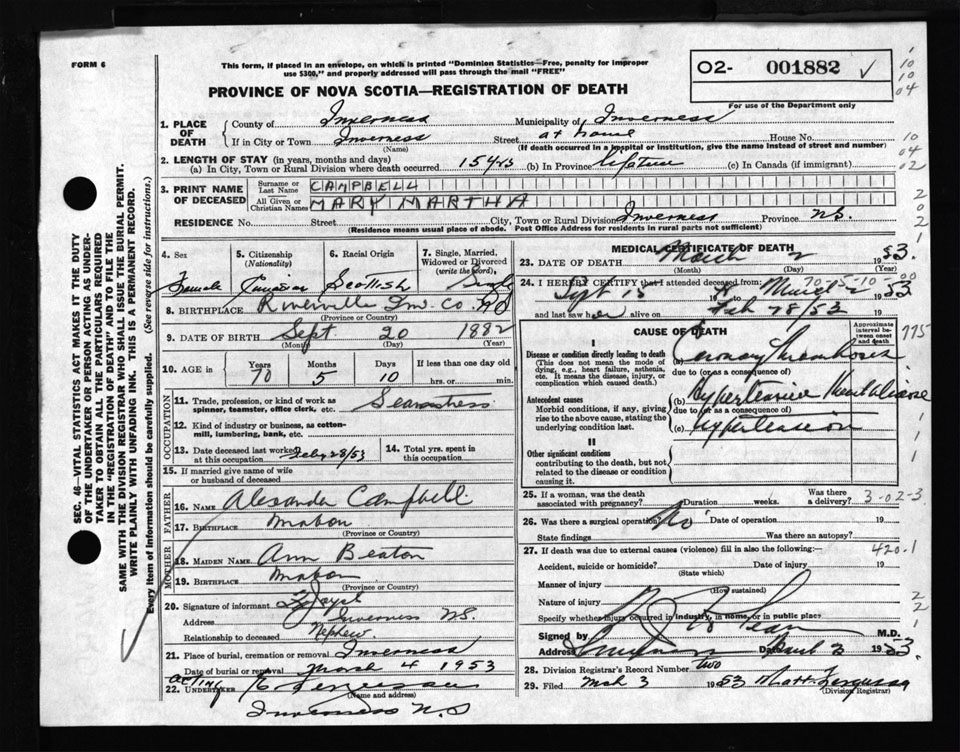 FORM 6
This form, if placed in an envelope, on which is printed "Dominion Statistics—Free, penalty for improper
use $300," and properly addressed will pass through the mail "FREE"
PROVINCE OF NOVA SCOTIA—REGISTRATION OF DEATH
O2- 001882
For use of the Department only
10
10
04
1. PLACE OF DEATH
County of Inverness Municipality of Inverness
If in City or Town Inverness Street at home House No.
(Name) (If death occurred in a hospital or institution, give the name instead of street and number)
10
04
02
2. LENGTH OF STAY (in years, months and days)
(a) In City, Town or Rural Division where death occurred 15 yrs (b) In Province lifetime (c) In Canada (if immigrant)
3. PRINT NAME OF DECEASED
Surname or Last Name CAMPBELL
All Given or Christian Names MARY MARTHA
RESIDENCE No. Street City, Town or Rural Division Inverness Province N.S.
(Residence means usual place of abode. Post Office Address for residents in rural parts not sufficient)
2
0
2
1
4. Sex Female
5. Citizenship (Nationality) Canadian
6. Racial Origin Scottish
7. Single, Married, Widowed or Divorced (write the word) Single
8. BIRTHPLACE Inv. Co. NS
(Province or Country)
9. DATE OF BIRTH Sept 20 1882
(Month) (Day) (Year)
10. AGE in Years 70 Months 5 Days 10 If less than one day old
hrs. or min.
OCCUPATION
11. Trade, profession, or kind of work as
spinner, teamster, office clerk, etc. Seamstress
12. Kind of industry or business, as cotton-
mill, lumbering, bank, etc.
13. Date deceased last worked at this occupation Feby 28/53
14. Total yrs. spent in this occupation
15. If married give name of wife
or husband of deceased
FATHER
16. NAME Alexander Campbell
17. BIRTHPLACE Mabou
(Province or Country)
MOTHER
18. MAIDEN NAME Ann Beaton
19. BIRTHPLACE Mabou
(Province or Country)
20. Signature of informant
Address Inverness NS.
Relationship to deceased Nephew
21. Place of burial, cremation or removal Inverness
Date of burial or removal March 4 1953
acting
22. UNDERTAKER
(Name and address)
Inverness N.S
MEDICAL CERTIFICATE OF DEATH
23. DATE OF DEATH March 2 1953.
(Month) (Day) (Year)
24. I HEREBY CERTIFY that I attended deceased from:
70-5-10 00
Sept 15 19 to March 2 1953
and last saw her alive on Feb 28/53 19
CAUSE OF DEATH
Approximate interval between onset and death
775
I
Disease or condition directly leading to death
(This does not mean the mode of
dying, e.g., heart failure, asthenia,
etc. It means the disease, injury, or
complication which caused death.)
(a) Coronary Thrombosis
due to (or as a consequence of)
Antecedent causes
Morbid conditions, if any, giving
rise to the above cause, stating the
underlying condition last.
(b) Hypertensive Heart disease
due to (or as a consequence of)
(c) Hypertension
II
Other significant conditions
Contributing to the death, but not
related to the disease or condition
causing it.
25. If a woman, was the death
associated with pregnancy? Duration weeks. Was there a delivery?
3-02-3
26. Was there a surgical operation? No Date of operation 19
State findings Was there an autopsy?
27. If death was due to external causes (violence) fill in also the following:—
420.1
Accident, suicide or homicide? Date of injury 19
(State which)
Manner of injury
(How sustained)
Nature of injury
Specify whether injury occurred in industry, in home, or in public place
Signed by M.D.
Address 1953.
28. Division Registrar's Record Number two
29. Filed Mch 3 1953
(Division Registrar)
SEC. 46—VITAL STATISTICS ACT MAKES IT THE DUTY
OF THE UNDERTAKER OR PERSON ACTING AS UNDER-
TAKER TO OBTAIN ALL THE PARTICULARS REQUIRED
IN THE "REGISTRATION OF DEATH" AND TO FILE THE
SAME WITH THE DIVISION REGISTRAR WHO SHALL ISSUE THE BURIAL PERMIT.
WRITE PLAINLY WITH UNFADING INK. THIS IS A PERMANENT RECORD.
Every item of Information should be carefully supplied. (See reverse side for instructions.)